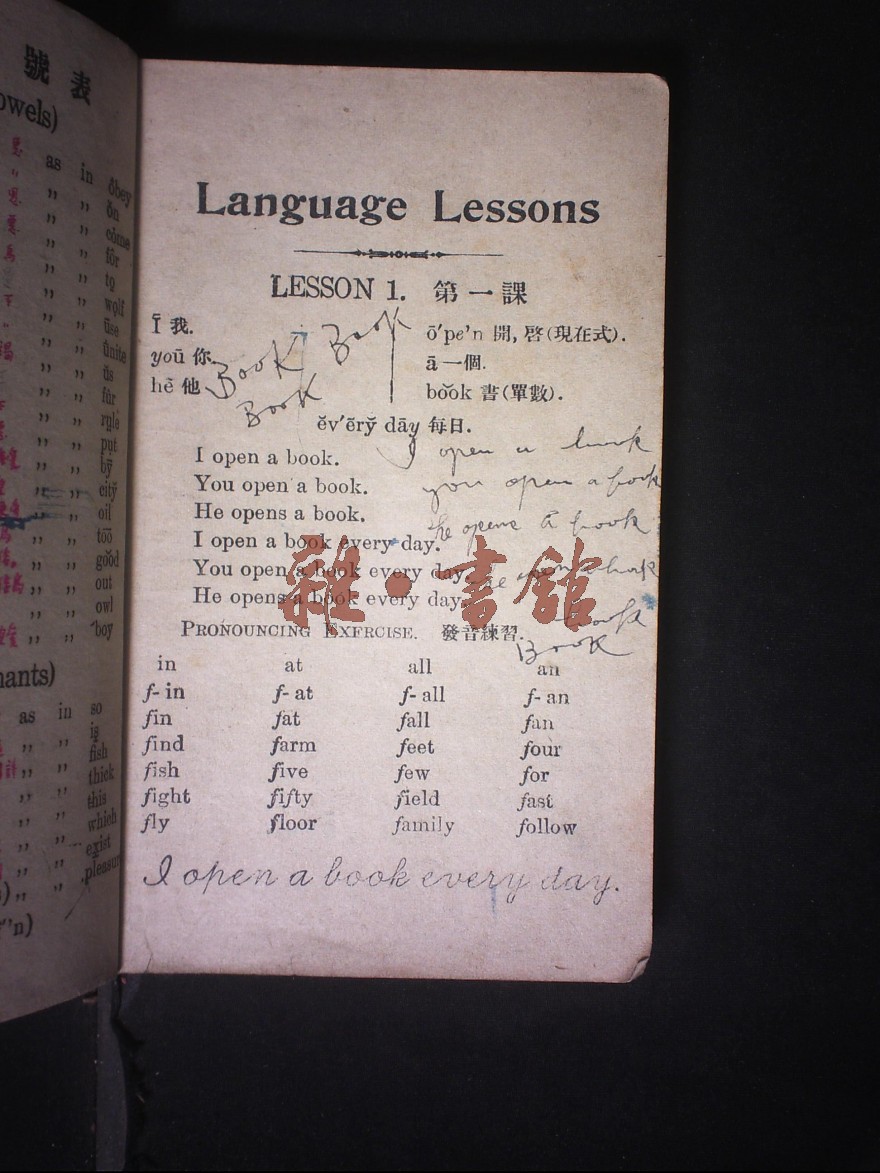 號表
owels)
as in ōbey
" " ŏn
" " cȯme
" " fôr
" " tọ
" " wọlf
" " ūse
" " ûnite
" " ŭs
" " fûr
" " rụle
" " put
" " bȳ
" " city̆
" " oil
" " to͞o
" " go͝od
" " out
" " owl
" " boy
nants)
as in so
" " is
" " fish
" " thick
" " this
" " which
" " exist
" " pleasur
Language Lessons
LESSON 1. 第一課
Ī 我.
yoū 你.
hē 他
Book Book
Book
ō'pe'n 開, 啓(現在式).
ā 一個.
bo͝ok 書(單數).
ĕv'ērȳ dāy 每日.
I open a book. I open a book
You open a book. you open a book
He opens a book. he opens a book
I open a book every day.
You open a book every day.
He opens a book every day.
book
Book
雜·書館
PRONOUNCING EXERCISE. 發音練習.
in at all an
f-in f-at f-all f-an
fin fat fall fan
find farm feet four
fish five few for
fight fifty field fast
fly floor family follow
I open a book every day.